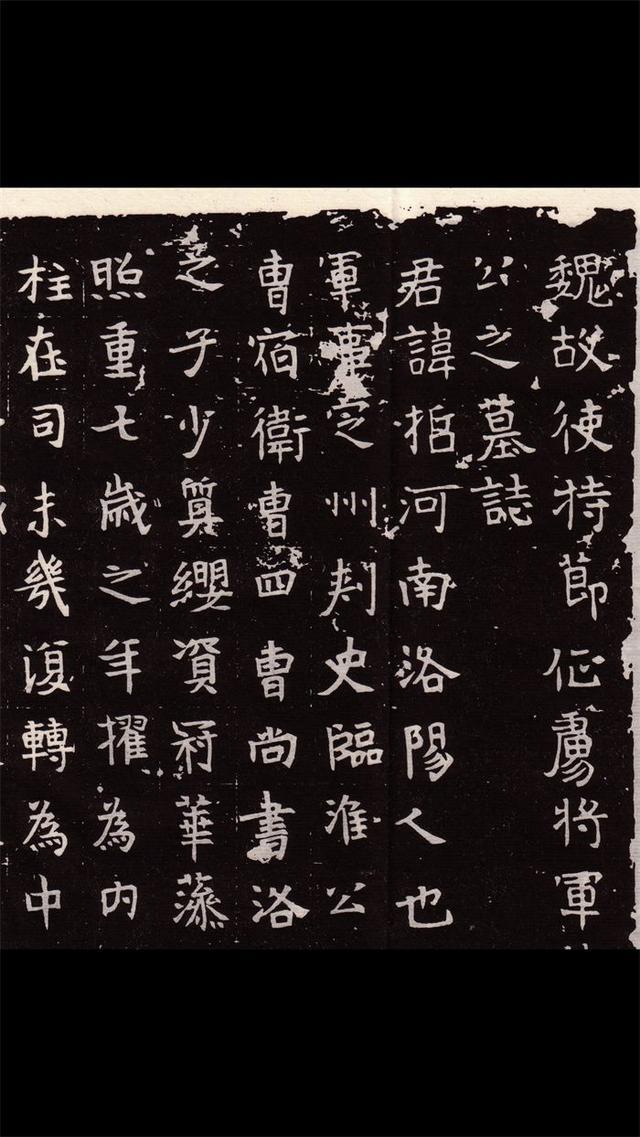 魏故使持節征虜將軍
公之墓誌
君諱括河南洛陽人也
軍事定州刺史臨淮公
曹宿衛曹四曹尚書洛
之子少簉纓資冠華蔭
照重七歲之年擢為内
柱在司未幾復轉為中